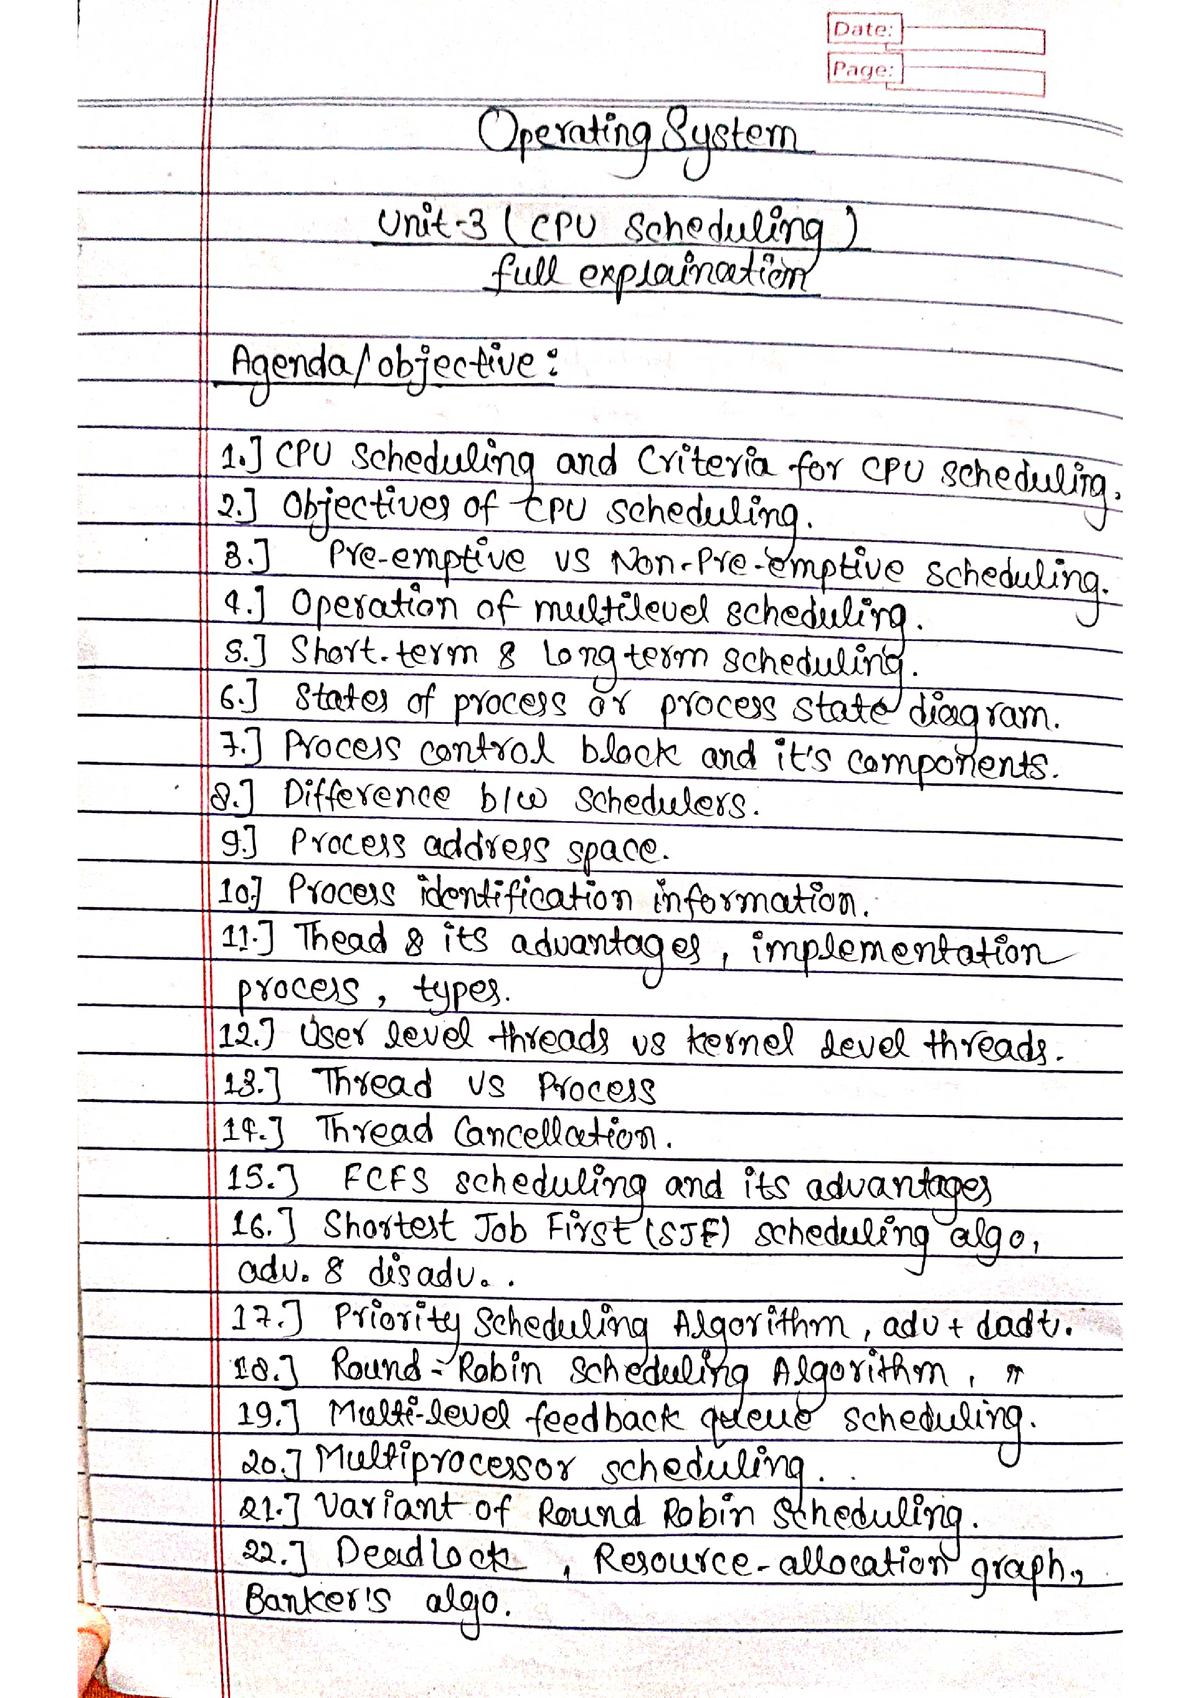 Date:
Page:
Operating System
Unit-3 (CPU Scheduling)
full explaination
Agenda/objective:
1.] CPU Scheduling and Criteria for CPU scheduling.
2.] Objectives of CPU scheduling.
3.] Pre-emptive vs Non-Pre-emptive scheduling.
4.] Operation of multilevel scheduling.
5.] Short-term & Long term scheduling.
6.] States of process or process state diagram.
7.] Process control block and it's components.
8.] Difference b/w schedulers.
9.] Process address space.
10.] Process identification information.
11.] Thead & its advantages, implementation
process, types.
12.] User level threads vs kernel level threads.
13.] Thread vs Process
14.] Thread Cancellation.
15.] FCFS scheduling and its advantages
16.] Shortest Job First (SJF) scheduling algo,
adv. & disadv..
17.] Priority Scheduling Algorithm, adv + dadt.
18.] Round-Robin Scheduling Algorithm, "
19.] Multi-level feedback queue scheduling.
20.] Multiprocessor scheduling..
21.] Variant of Round Robin Scheduling.
22.] Deadlock, Resource-allocation graph,
Banker's algo.